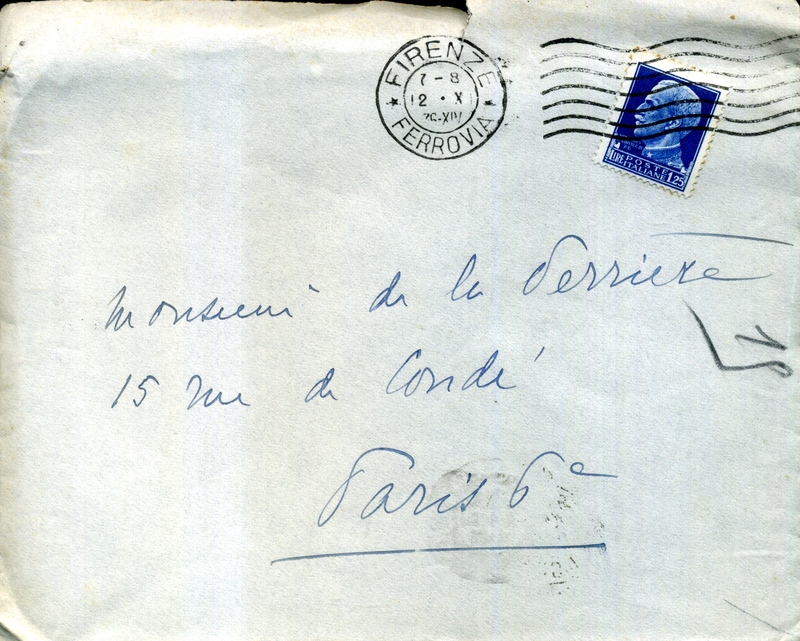 FIRENZE
7-8
12·X
36-XIV
FERROVIA
POSTE
ITALIANE
LIRE 1,25
Monsieur de la Perriere
15 rue de Condé
Paris 6e
15